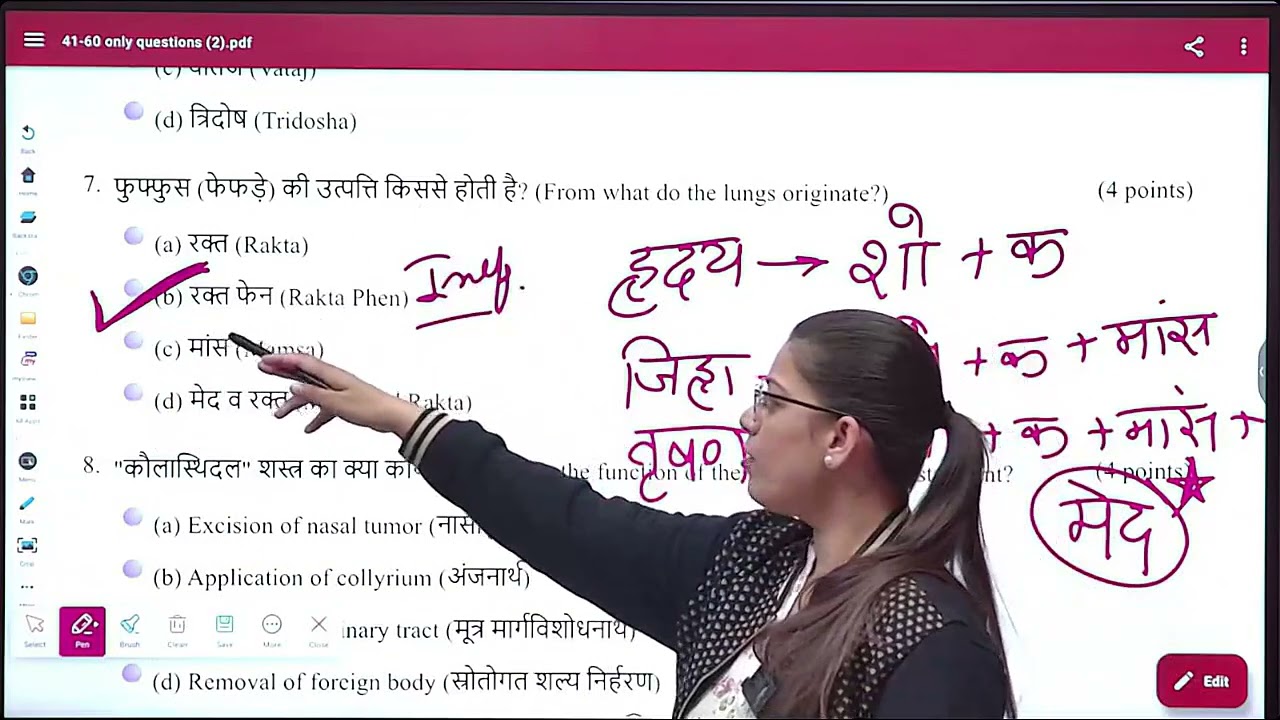 41-60 only questions (2).pdf
(c) वातज (Vataj)
(d) त्रिदोष (Tridosha)
7. फुफ्फुस (फेफड़े) की उत्पत्ति किससे होती है? (From what do the lungs originate?) (4 points)
(a) रक्त (Rakta)
(b) रक्त फेन (Rakta Phen)
(c) मांस (Mamsa)
(d) मेद व रक्त Rakta)
Imp.
हृदय → शो + क
जिह्वा + क + मांस
वृषण + क + मांस +
मेद
8. "कौलास्थिदल" शस्त्र का क्या the function of the nt? (4 points)
(a) Excision of nasal tumor
(b) Application of collyrium (अंजनार्थ)
inary tract (मूत्र मार्गविशोधनार्थ)
(d) Removal of foreign body (स्रोतोगत शल्य निर्हरण)
Back
Home
Select Pen Brush Clear Save More Close
Edit